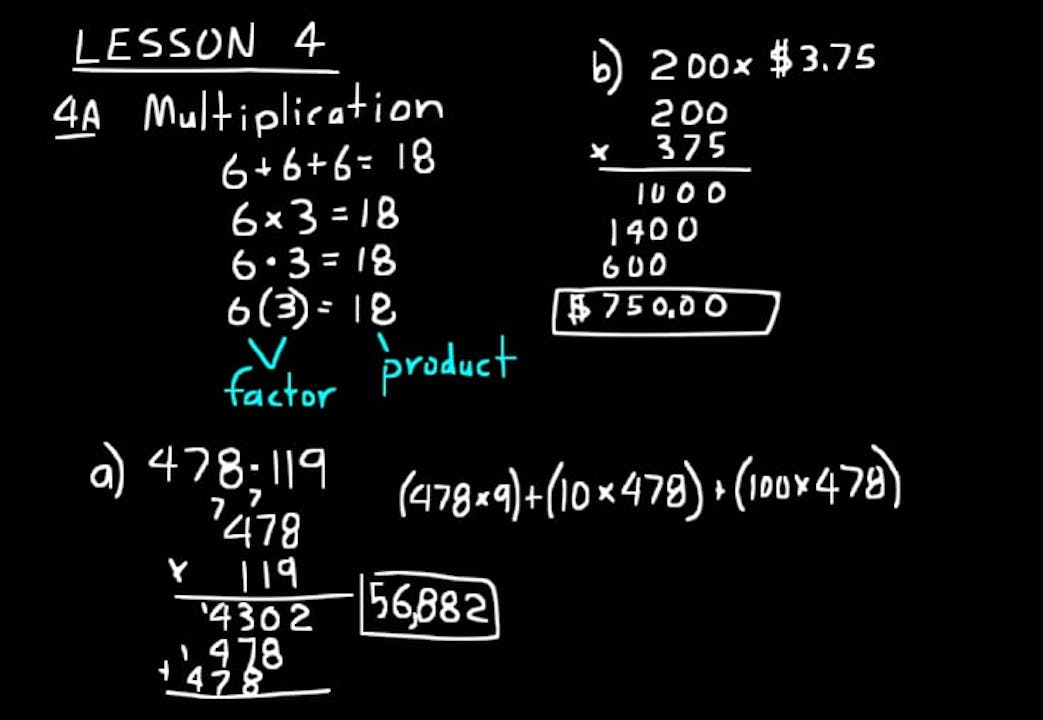 LESSON 4
4A Multiplication
6+6+6= 18
6×3=18
6·3=18
6(3)= 18
factor
product
b) 200× $3.75
200
× 375
1000
1400
600
$750.00
a) 478·119
7 7
478
× 119
14302
1 478
+ 478
56,882
(478×9)+(10×478)+(100×478)